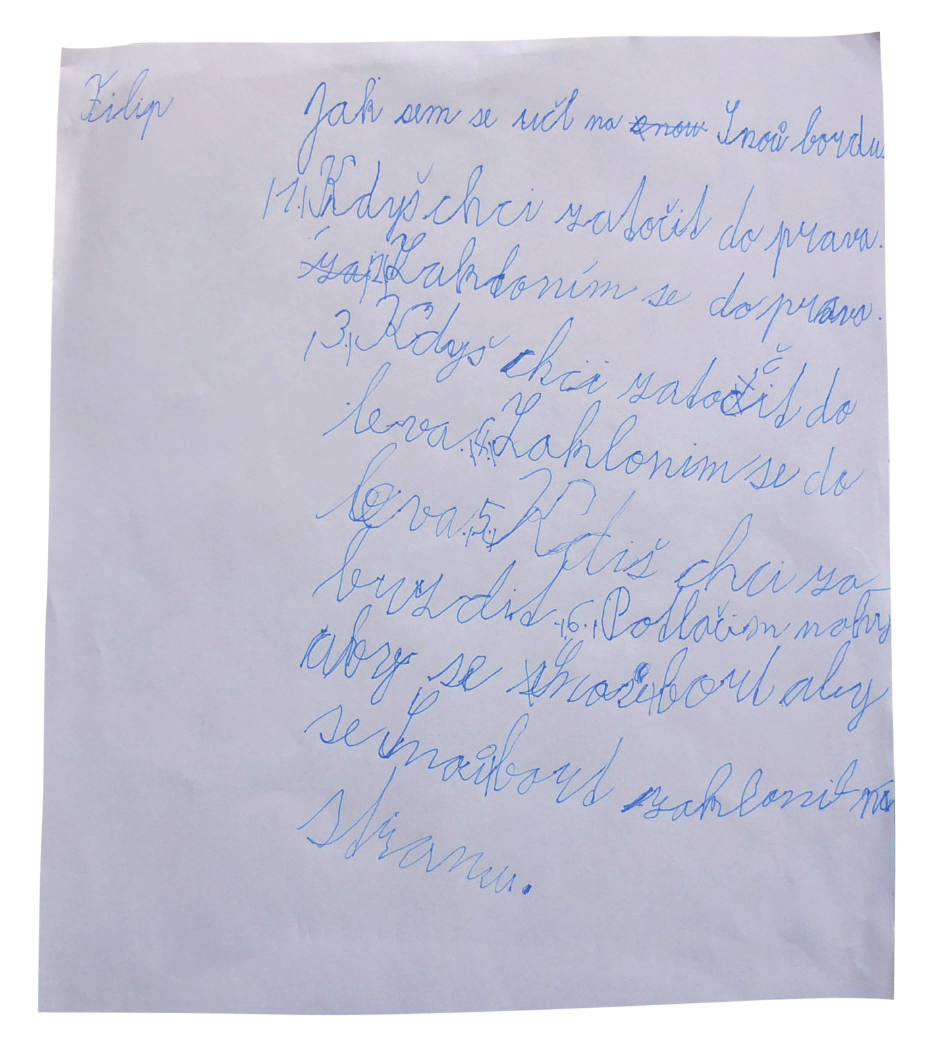 Filip
Jak sem se učl na snow Snoů bordu
1. Kdyš chci zatočit do prava.
za 2. Zakloním se do prava.
3. Kdyš chci zatočit do
leva. 4. Zaklonim se do
leva. 5. Kdiš chci za-
buzdit. 6. Potlačim nohy
aby se Snoů bort aby
se Snoů bort zaklonil na
stranu.